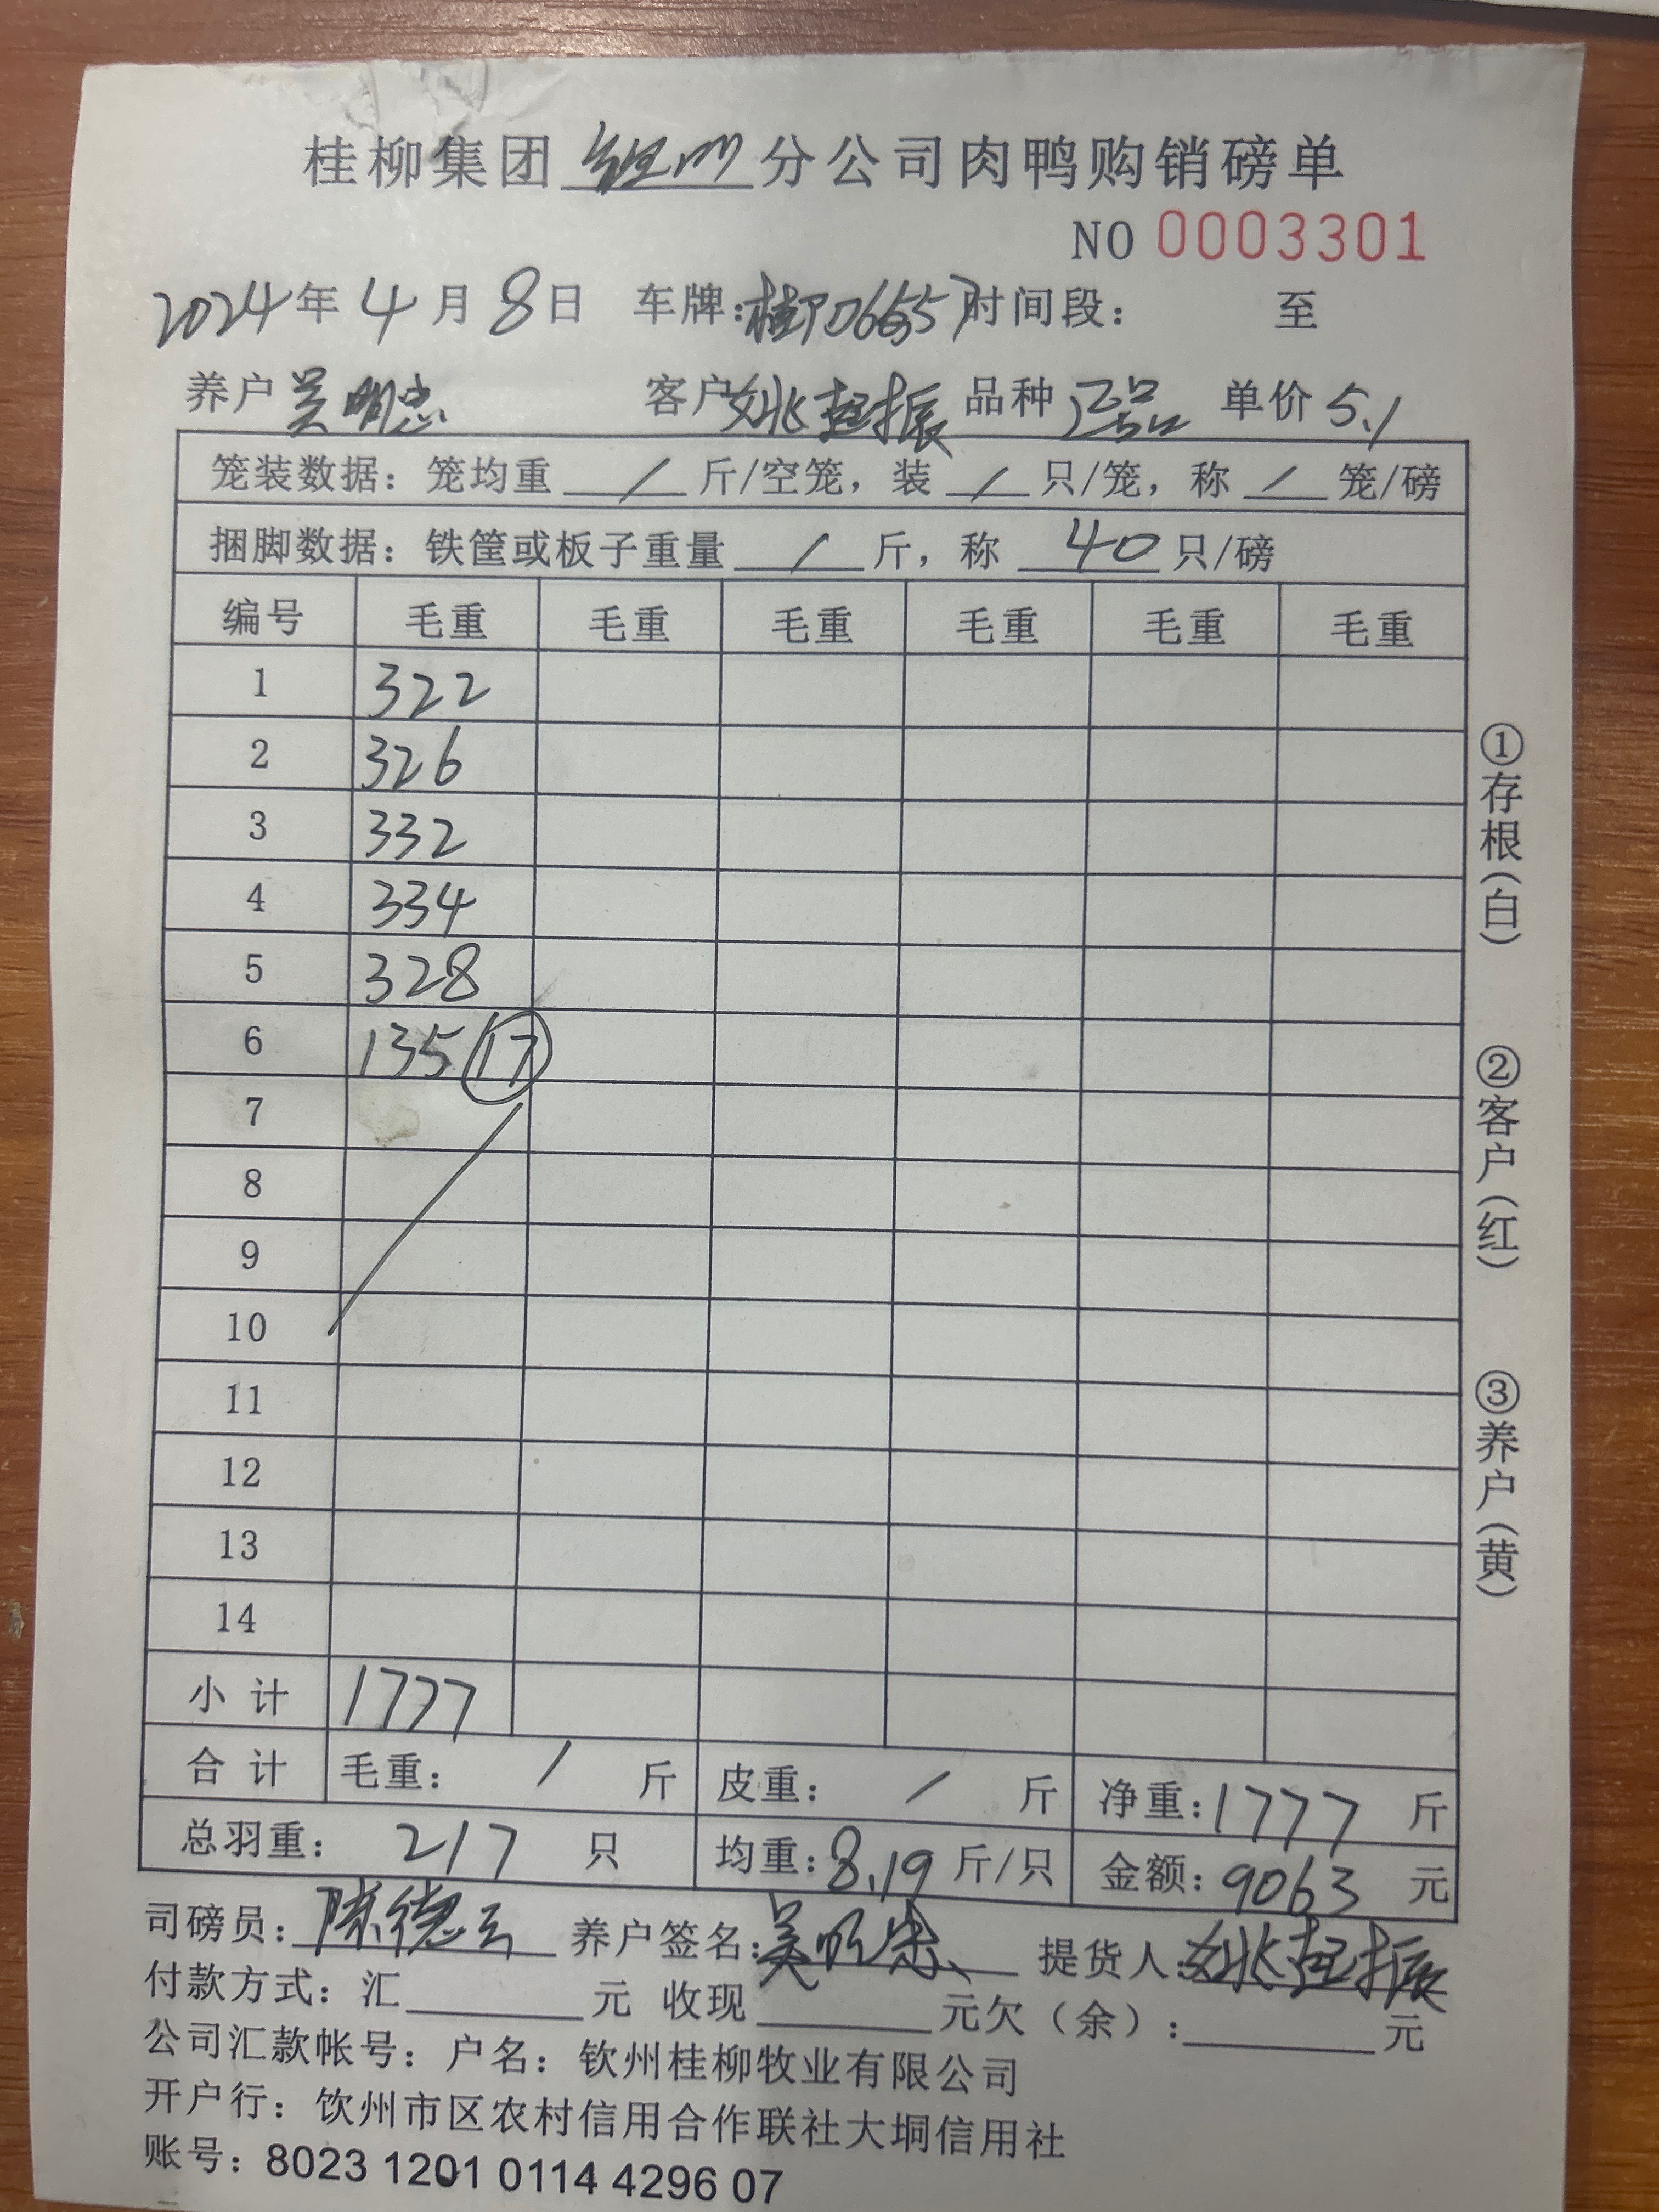 桂柳集团 钦州 分公司肉鸭购销磅单
NO 0003301
2024年 4月 8日 车牌:桂PD6655 时间段: 至
养户 吴明忠 客户 姚起振 品种 正品 单价 5.1
笼装数据: 笼均重 / 斤/空笼, 装 / 只/笼, 称 / 笼/磅
捆脚数据: 铁筐或板子重量 / 斤, 称 40 只/磅
编号 毛重 毛重 毛重 毛重 毛重 毛重
1 322
2 326
3 332
4 334
5 328
6 135 17
7
8
9
10
11
12
13
14
小计 1777
合计 毛重: / 斤 皮重: / 斤 净重: 1777 斤
总羽重: 217 只 均重: 8.19 斤/只 金额: 9063 元
司磅员: 陈德云 养户签名: 吴明忠 提货人: 姚起振
付款方式: 汇 元 收现 元欠(余): 元
公司汇款帐号: 户名: 钦州桂柳牧业有限公司
开户行: 饮州市区农村信用合作联社大垌信用社
账号: 8023 1201 0114 4296 07
①存根(白)
②客户(红)
③养户(黄)